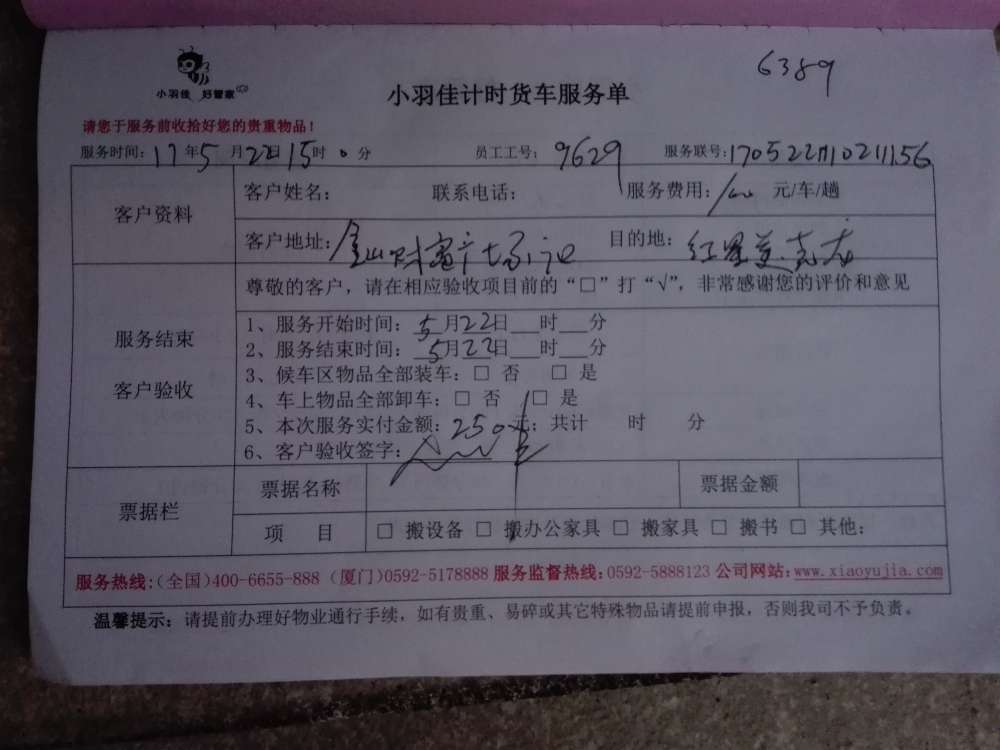 6389
小羽佳 好管家
小羽佳计时货车服务单
请您于服务前收拾好您的贵重物品！
服务时间：17年5月22日15时0分 员工工号：9629 服务联号：
客户资料
客户姓名： 联系电话： 服务费用： 元/车/趟
客户地址：金山财富广场 目的地：红星美凯龙
服务结束
客户验收
尊敬的客户，请在相应验收项目前的“□”打“√”，非常感谢您的评价和意见
1、服务开始时间：5月22日___时___分
2、服务结束时间：5月22日___时___分
3、候车区物品全部装车：□ 否 □ 是
4、车上物品全部卸车：□ 否 □ 是
5、本次服务实付金额：250元；共计 时 分
6、客户验收签字：
票据栏
票据名称 票据金额
项 目 □ 搬设备 □ 搬办公家具 □ 搬家具 □ 搬书 □ 其他：
服务热线：（全国）400-6655-888 （厦门）0592-5178888 服务监督热线：0592-5888123 公司网站：www.xiaoyujia.com
温馨提示：请提前办理好物业通行手续，如有贵重、易碎或其它特殊物品请提前申报，否则我司不予负责。